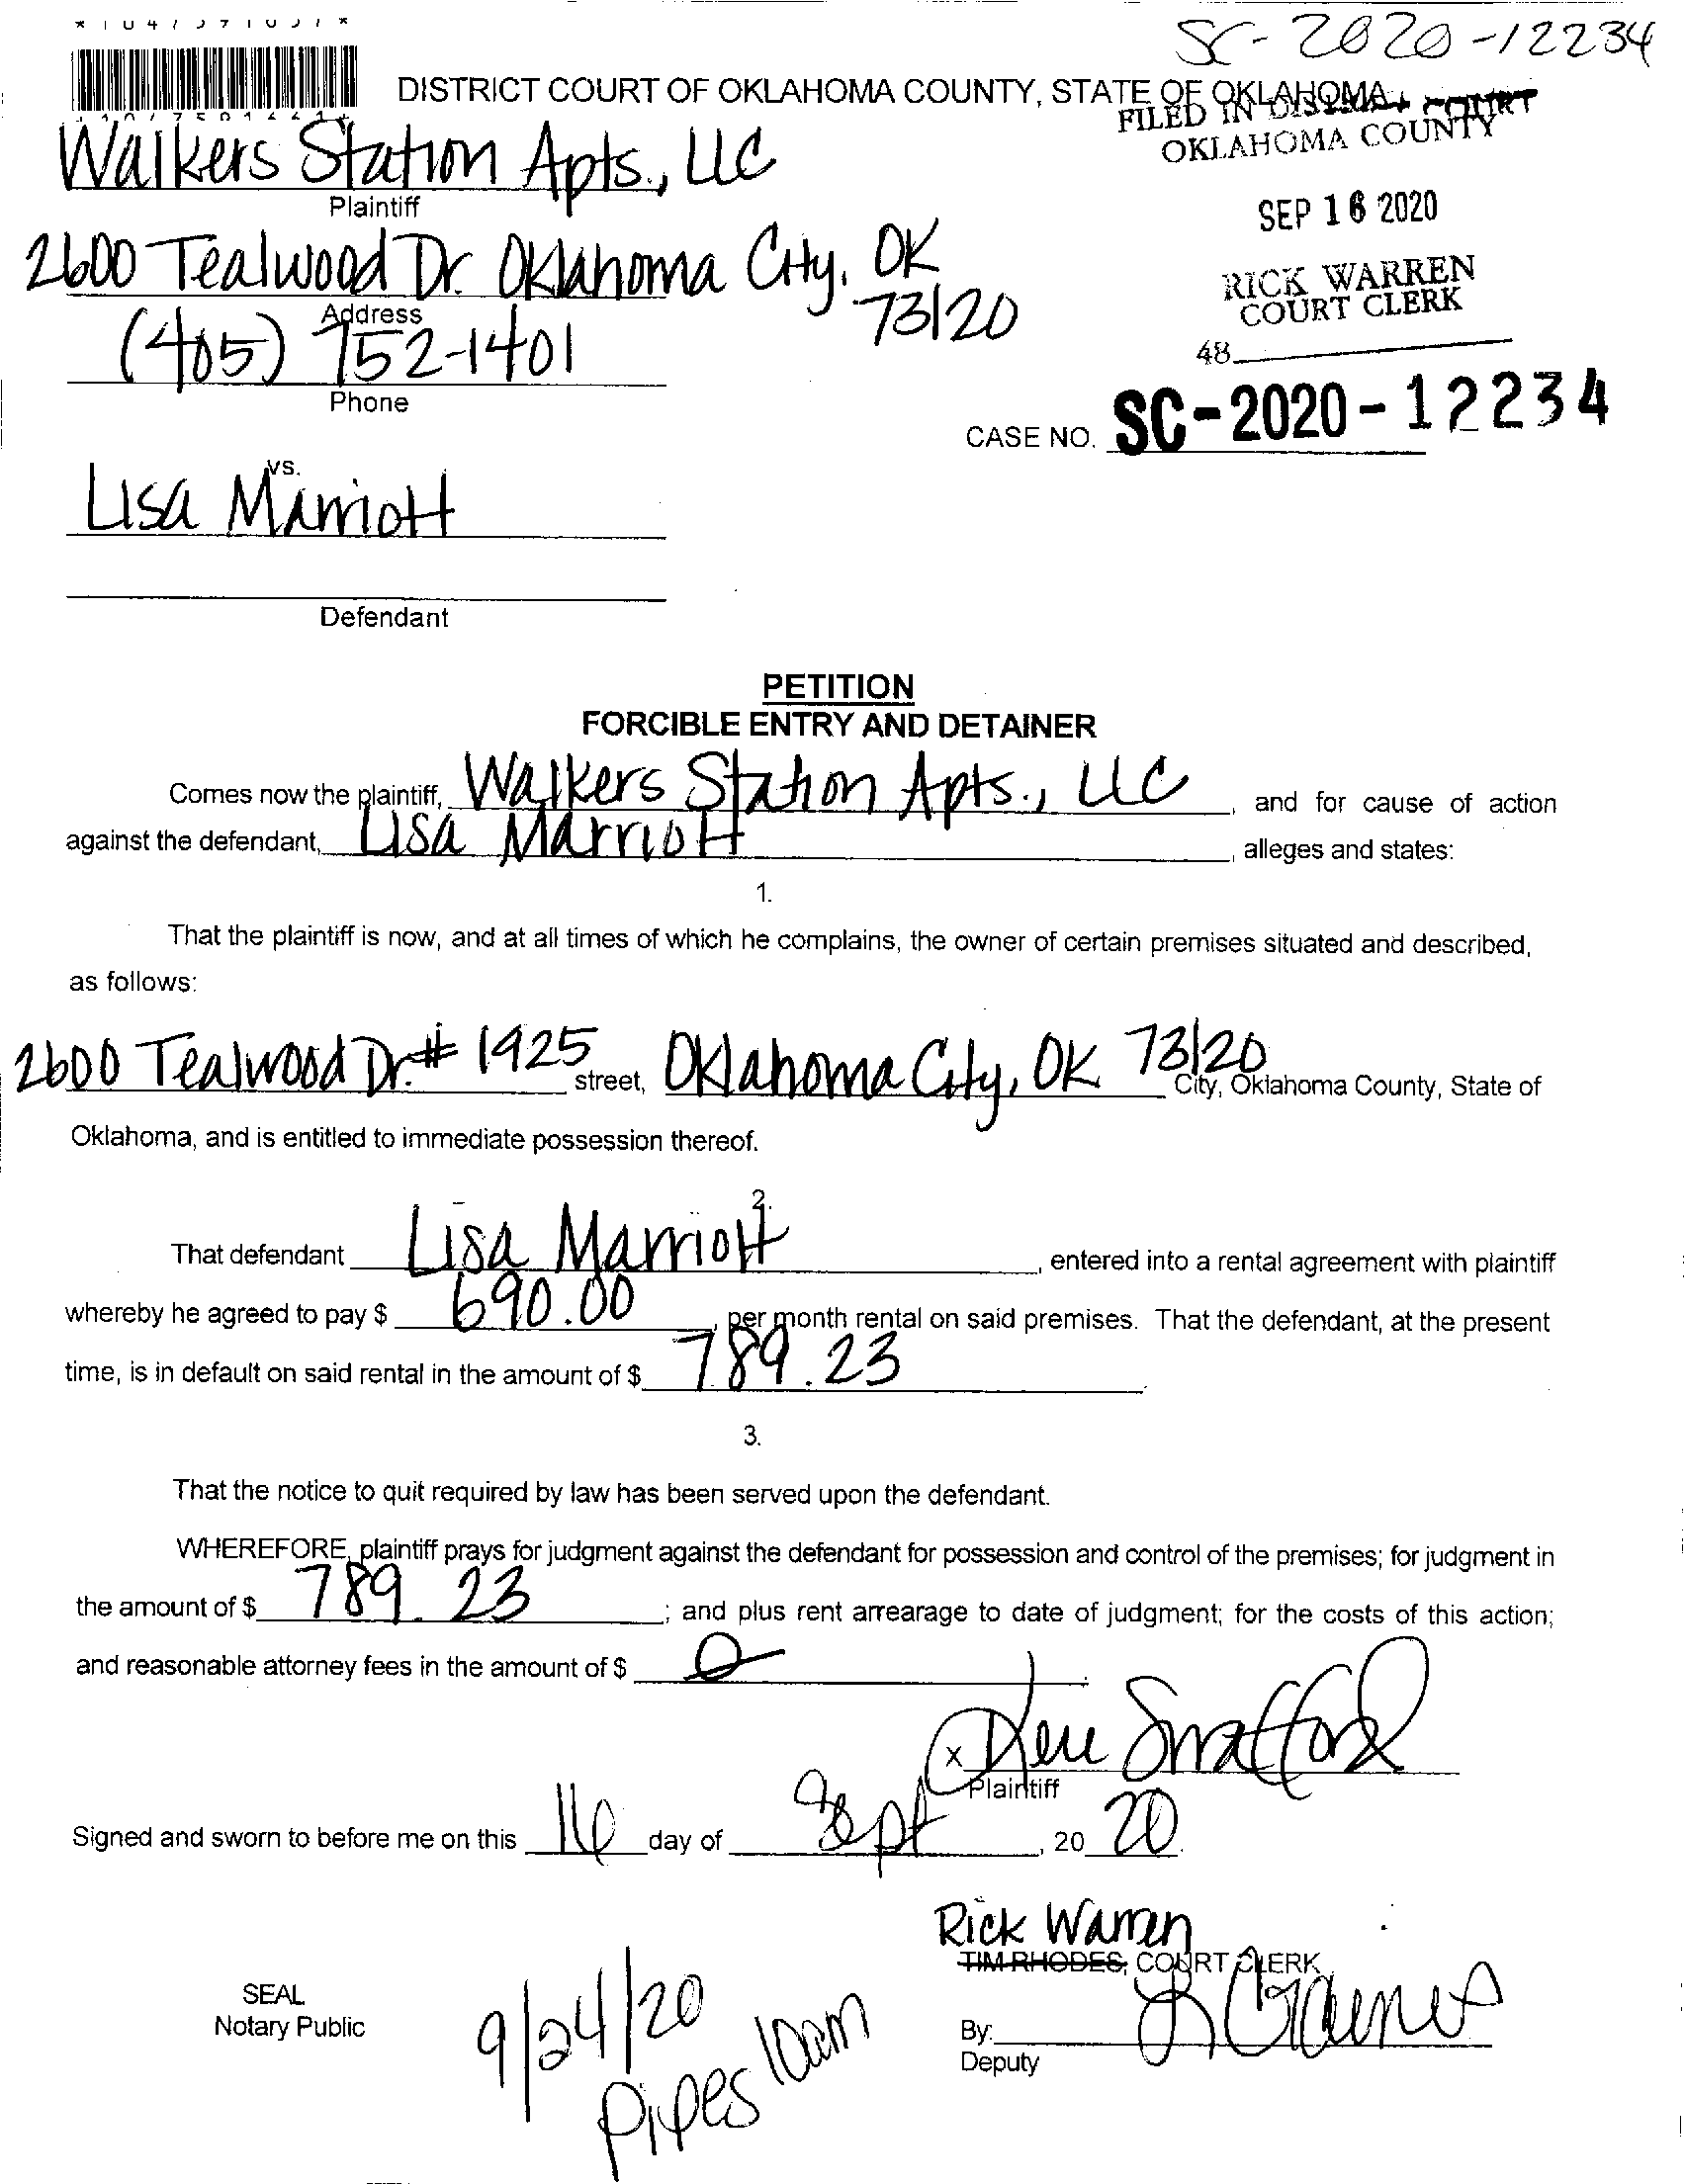 SC-2020-12234
DISTRICT COURT OF OKLAHOMA COUNTY, STATE OF OKLAHOMA
FILED IN DISTRICT COURT
OKLAHOMA COUNTY
Walkers Station Apts., LLC
Plaintiff
SEP 16 2020
2600 Tealwood Dr. Oklahoma City, OK
73120
Address
RICK WARREN
COURT CLERK
(405) 752-1401
Phone
48
CASE NO. SC-2020-12234
vs.
Lisa Marriott
Defendant
PETITION
FORCIBLE ENTRY AND DETAINER
Comes now the plaintiff, Walkers Station Apts., LLC, and for cause of action
against the defendant, Lisa Marriott, alleges and states:
1.
That the plaintiff is now, and at all times of which he complains, the owner of certain premises situated and described,
as follows:
2600 Tealwood Dr. # 1925 street, Oklahoma City, OK 73120 City, Oklahoma County, State of
Oklahoma, and is entitled to immediate possession thereof.
2.
That defendant Lisa Marriott, entered into a rental agreement with plaintiff
whereby he agreed to pay $ 690.00, per month rental on said premises. That the defendant, at the present
time, is in default on said rental in the amount of $ 789.23
3.
That the notice to quit required by law has been served upon the defendant.
WHEREFORE, plaintiff prays for judgment against the defendant for possession and control of the premises; for judgment in
the amount of $ 789.23; and plus rent arrearage to date of judgment; for the costs of this action;
and reasonable attorney fees in the amount of $ 0
x
Plaintiff
Signed and sworn to before me on this 16 day of Sept, 20 20.
Rick Warren
TIM RHODES, COURT CLERK
SEAL
Notary Public
By:
Deputy
9/24/20
Pipes 10am